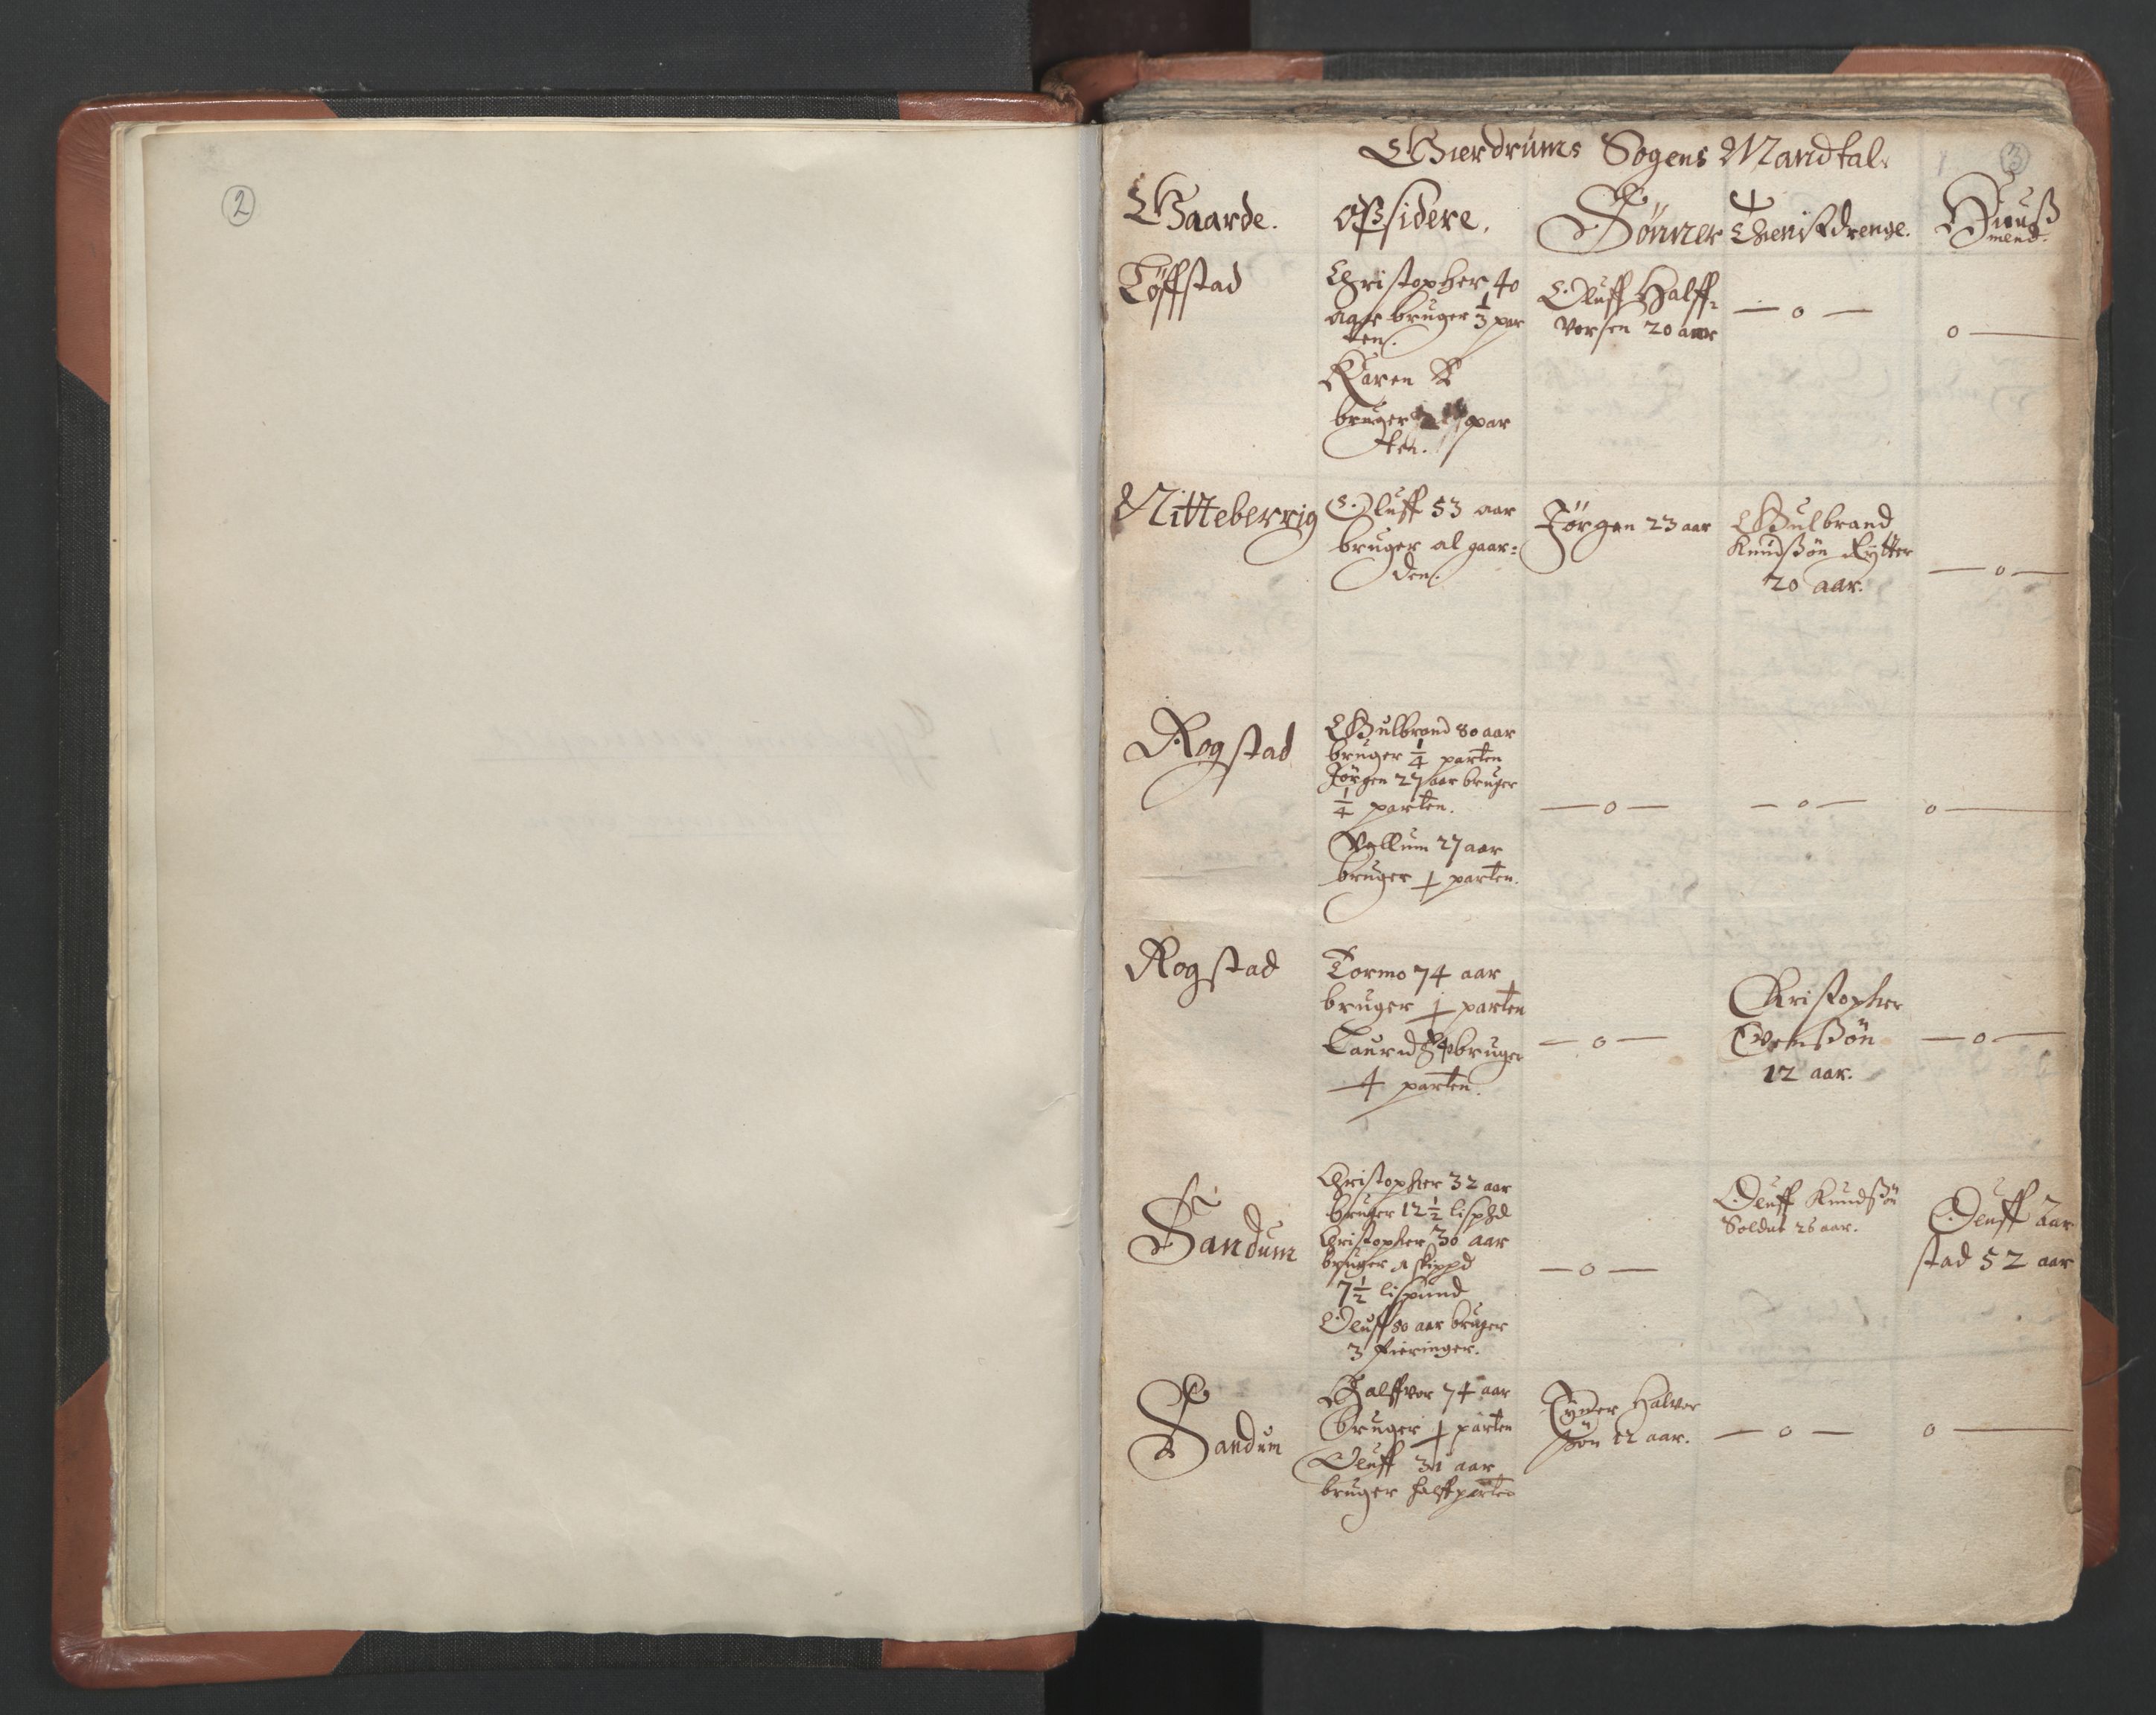 2
3
Gierdrums Sogens Mandtal.
Gaarde.
Opsidere.
Sönner
Thienistdrenge.
Huuß
mend.
Löffstad
Christopher 40
aar bruger 1/3 par
ten.
Karen
bruger par
ten.
Oluff Halff-
vorsen 20 aar
— o —
o —
Nitteberrig
Oluff 53 aar
bruger al gaar:
den.
Jörgen 23 aar
Gulbrand
Knudßön Rytter
20 aar.
— o —
Rogstad
Gulbrand 80 aar
bruger 1/4 parten
Jörgen 27 aar bruger
1/4 parten.
Vellum 27 aar
bruger parten.
— o —
— o —
o —
Rogstad
Tormo 74 aar
bruger parten
Laurid bruger
parten.
— o —
Christopher
12 aar.
— o —
Sandum
Christopher 32 aar
bruger 12 1/2 lisphd
Christopher 30 aar
bruger 1 skippd
7 1/2 lispund
Oluff 80 aar bruger
3 fieringer.
— o —
Oluff Knudßön
Soldat 26 aar.
Oluff Aar
stad 52 aar
Sandum
Halffvor 74 aar
bruger parten
Oluff 31 aar
bruger halffparten
Halvor
sön 12 aar.
— o —
o —